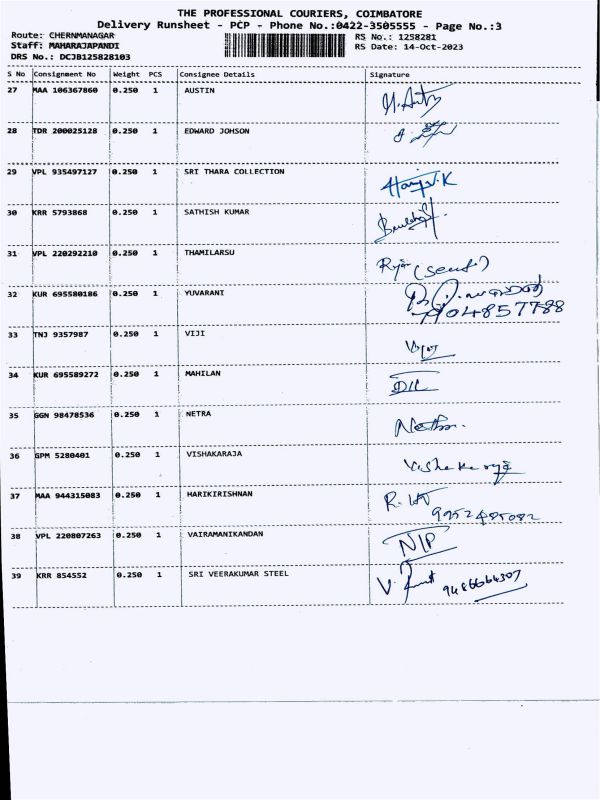 THE PROFESSIONAL COURIERS, COIMBATORE
Delivery Runsheet - PCP - Phone No.:0422-3505555 - Page No.:3
Route: CHERNMANAGAR RS No.: 1258281
Staff: MAHARAJAPANDI RS Date: 14-Oct-2023
DRS No.: DCJB125828103
S No Consignment No Weight PCS Consignee Details Signature
27 MAA 106367860 0.250 1 AUSTIN
28 TDR 200025128 0.250 1 EDWARD JOHSON
29 VPL 935497127 0.250 1 SRI THARA COLLECTION
30 KRR 5793868 0.250 1 SATHISH KUMAR
31 VPL 220292210 0.250 1 THAMILARSU
32 KUR 695580186 0.250 1 YUVARANI
33 TNJ 9357987 0.250 1 VIJI
34 KUR 695589272 0.250 1 MAHILAN
35 GGN 98478536 0.250 1 NETRA
36 GPM 5280401 0.250 1 VISHAKARAJA
37 MAA 944315083 0.250 1 HARIKIRISHNAN
38 VPL 220807263 0.250 1 VAIRAMANIKANDAN
39 KRR 854552 0.250 1 SRI VEERAKUMAR STEEL 9486664307